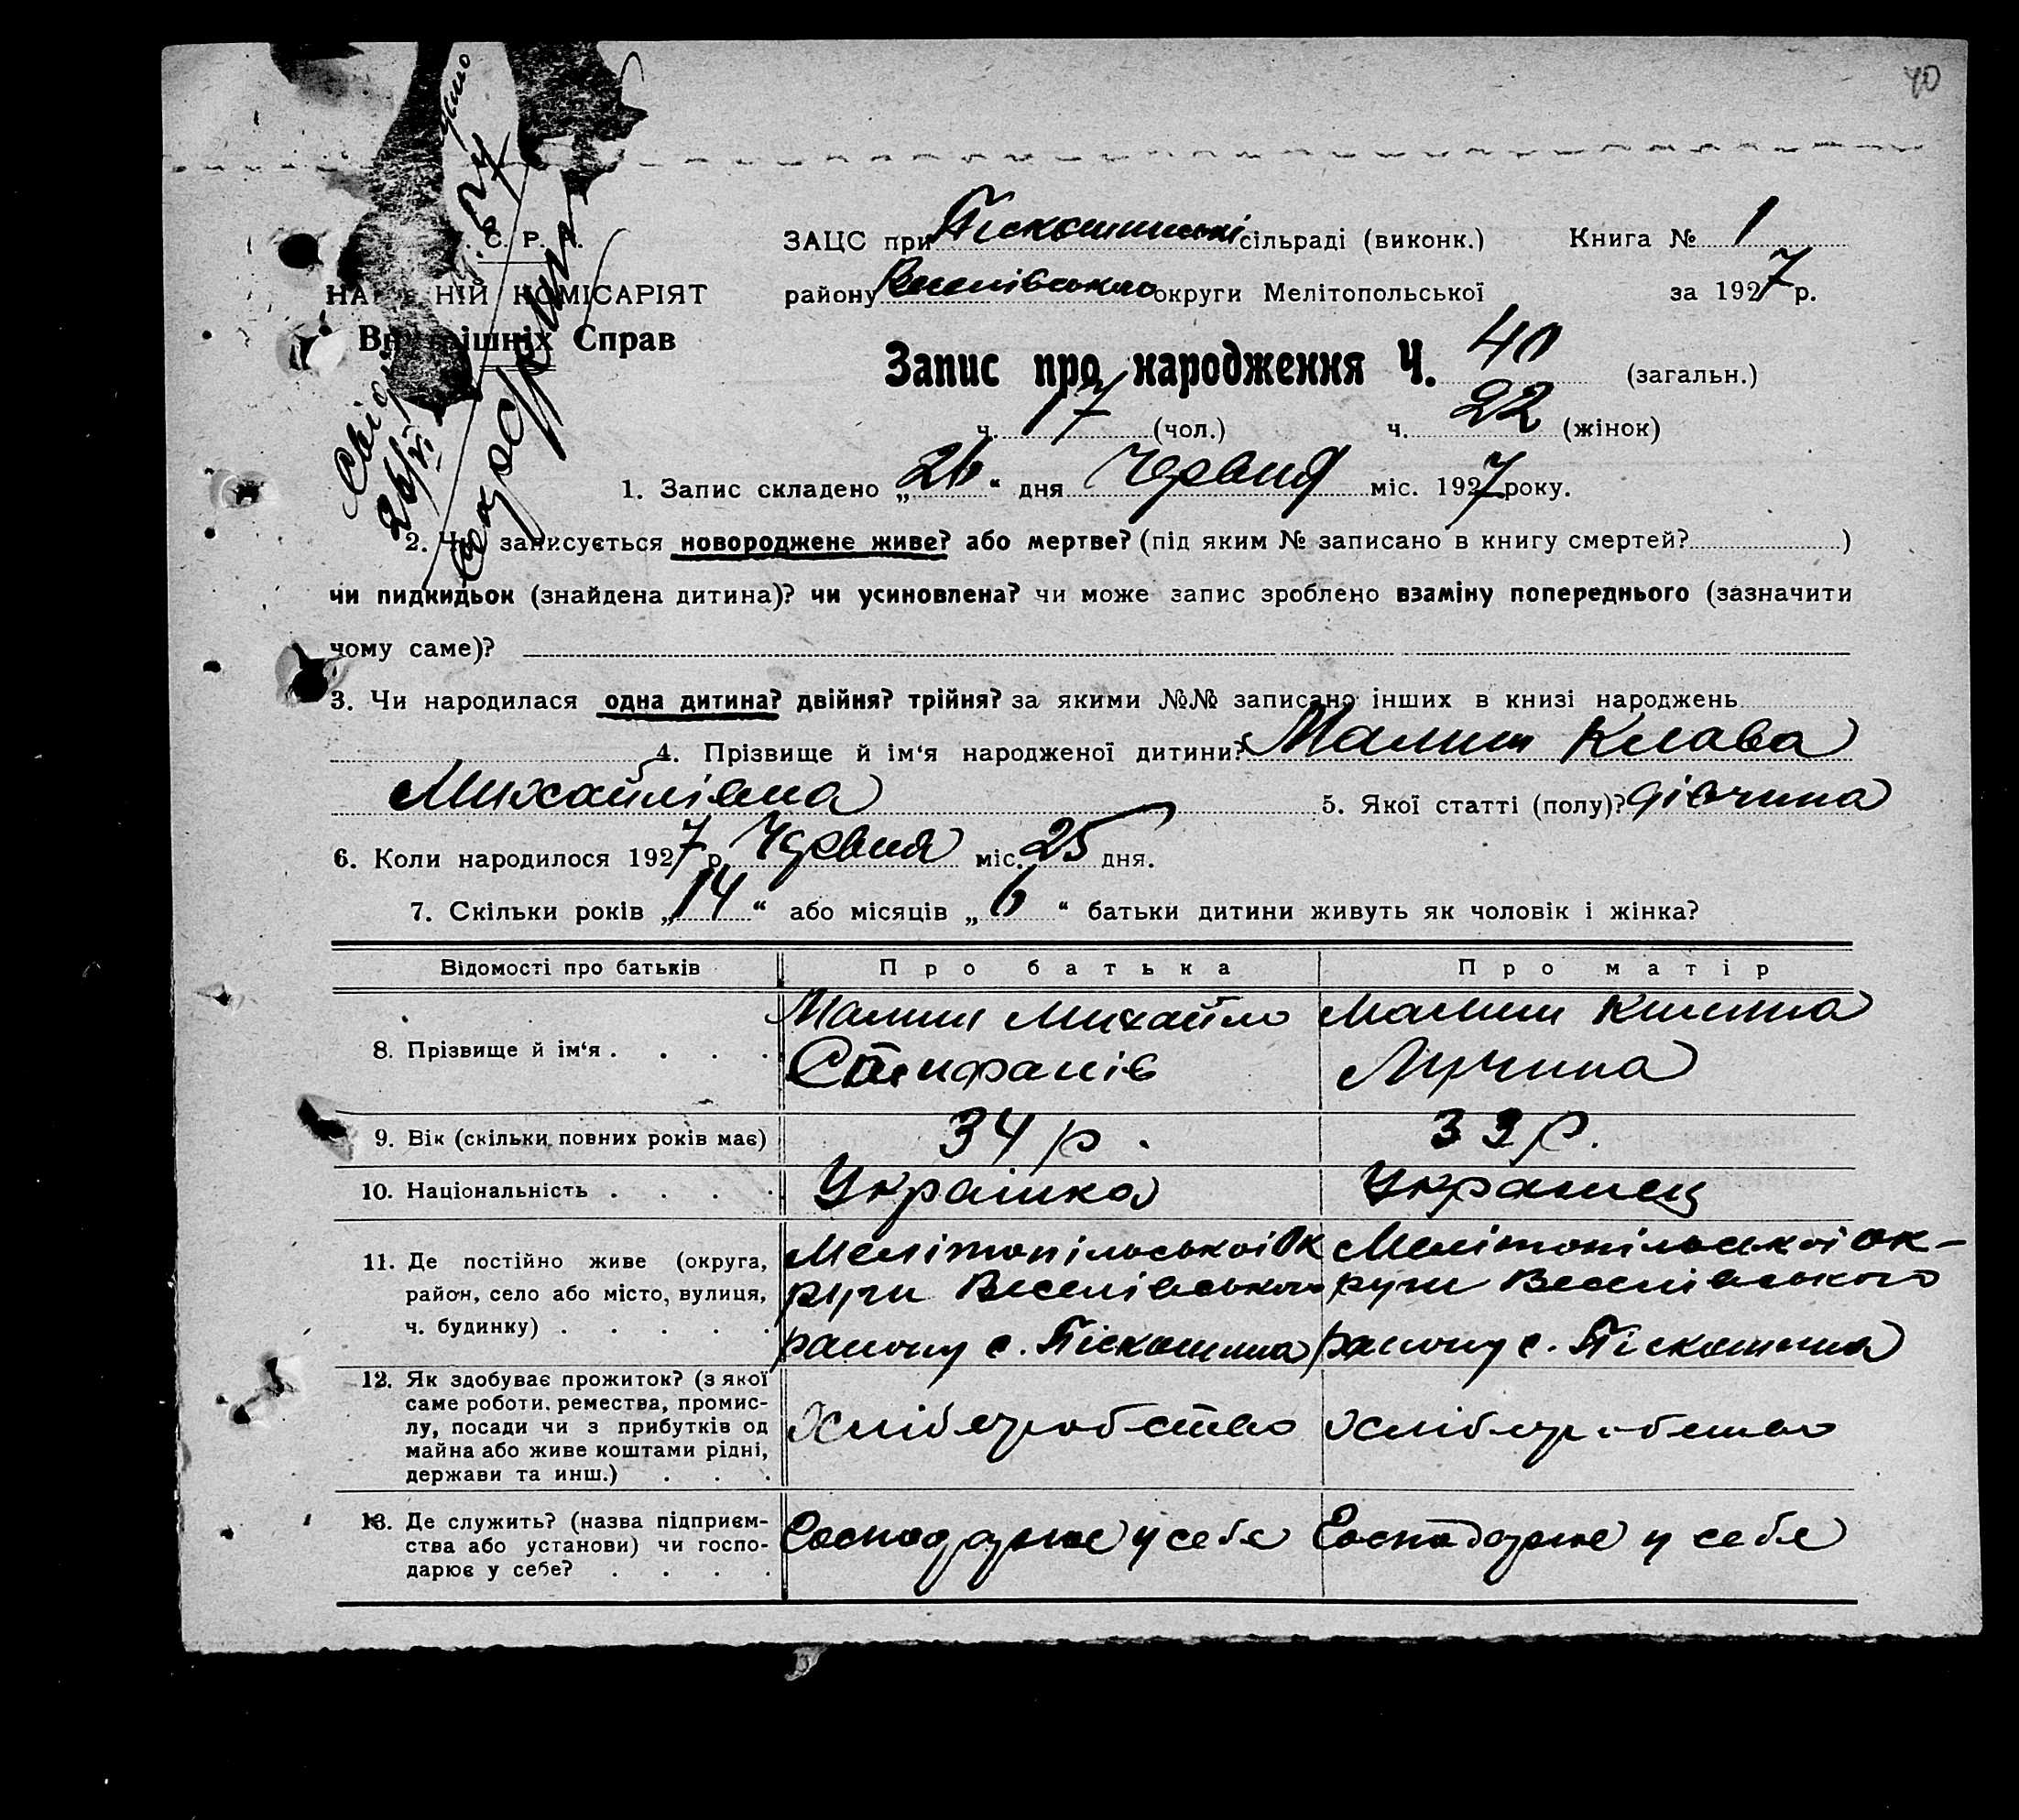 40
С. Р. Р.
НА НІЙ КОМІСАРІЯТ
Вн ішніх Справ
ЗАЦС при сільраді (виконк.) Книга № 1
району Веселівського округи Мелітопольської за 1927 р.
Запис про народження Ч. 40 (загальн.)
ч. 17 (чол.) ч. 22 (жінок)
1. Запис складено „26“ дня Червня міс. 1927 року.
2. Чи записується новороджене живе? або мертве? (під яким № записано в книгу смертей? )
чи пидкидьок (знайдена дитина)? чи усиновлена? чи може запис зроблено взаміну попереднього (зазначити
чому саме)?
3. Чи народилася одна дитина? двійня? трійня? за якими №№ записано інших в книзі народжень
4. Прізвище й ім‘я народженої дитини? Малиш Клава
Михайлівна 5. Якої статті (полу)? дівчина
6. Коли народилося 1927 р. Червня міс. 25 дня.
7. Скільки років „14“ або місяців „6“ батьки дитини живуть як чоловік і жінка?
Відомості про батьків Про батька Про матір
8. Прізвище й ім‘я . . . . Малиш Михайло Малиш
9. Вік (скільки повних років має) 34 р. 33 р.
10. Національність . . . . Українка Українец
11. Де постійно живе (округа, Мелітопільської Ок Мелітопільської ок-
район, село або місто, вулиця, руги Веселівського руги Веселівського
ч. будинку) . . . . . району с. Піскошина району с. Піскошина
12. Як здобуває прожиток? (з якої
саме роботи, ремества, промис-
лу, посади чи з прибутків од Хліборобство Хліборобство
майна або живе коштами рідні,
держави та инш.) . . .
13. Де служить? (назва підприєм-
ства або установи) чи госпо- Господарює у себе Господарює у себе
дарює у себе? . . . .